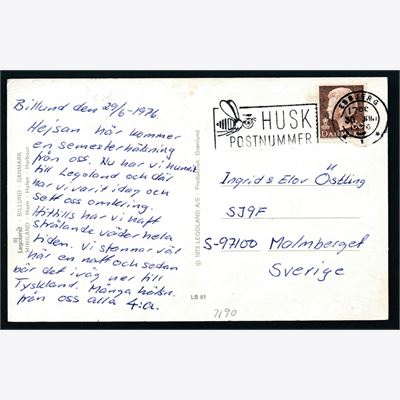 Billund den 29/6-1976.
Hejsan här kommer
en semesterhälsning
från oss. Nu har vi hunnit
till Legoland och där
har vi varit idag och
sett oss omkring.
Hittills har vi haft
strålande väder hela
tiden. Vi stannar väl
här en natt och sedan
bär det iväg ner till
Tyskland. Många hälsn.
från oss alla 4:a.
Legoland BILLUND - DANMARK
MINILAND
© 1973 LEGOLAND A/S - Produktion: Grønlund
LB 61
HUSK
POSTNUMMER
DANMARK
Ingrid & Elov Östling
SJ9F
S-97100 Malmberget
Sverige
7190